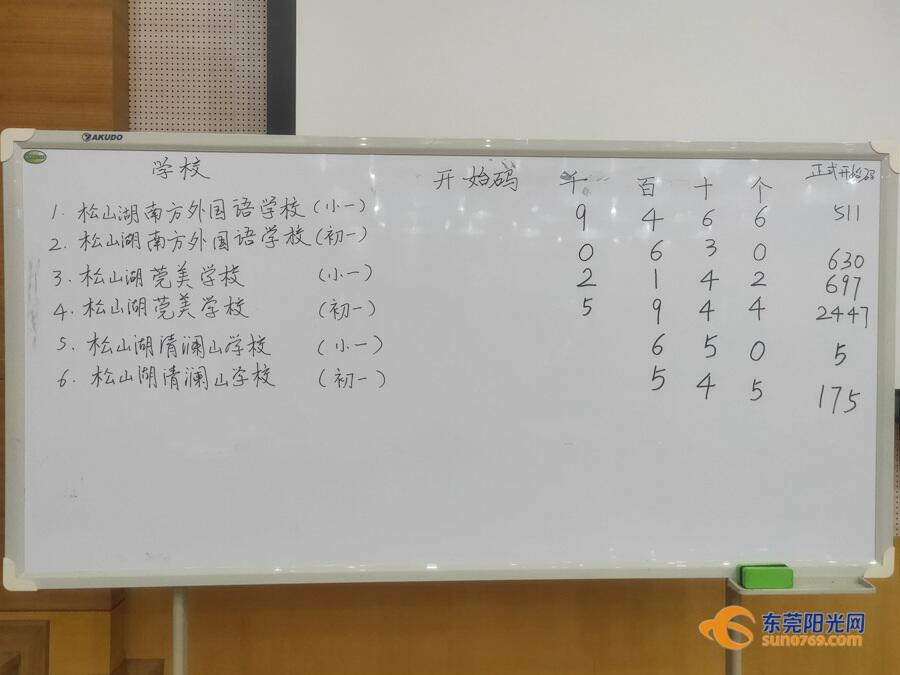 AKUDO
学校 开始码 千 百 十 个 正式开始码
1. 松山湖南方外国语学校(小一) 9 4 6 6 511
2. 松山湖南方外国语学校(初一) 0 6 3 0 630
3. 松山湖莞美学校 (小一) 2 1 4 2 697
4. 松山湖莞美学校 (初一) 5 9 4 4 2447
5. 松山湖清澜山学校 (小一) 6 5 0 5
6. 松山湖清澜山学校 (初一) 5 4 5 175
东莞阳光网
sun0769.com